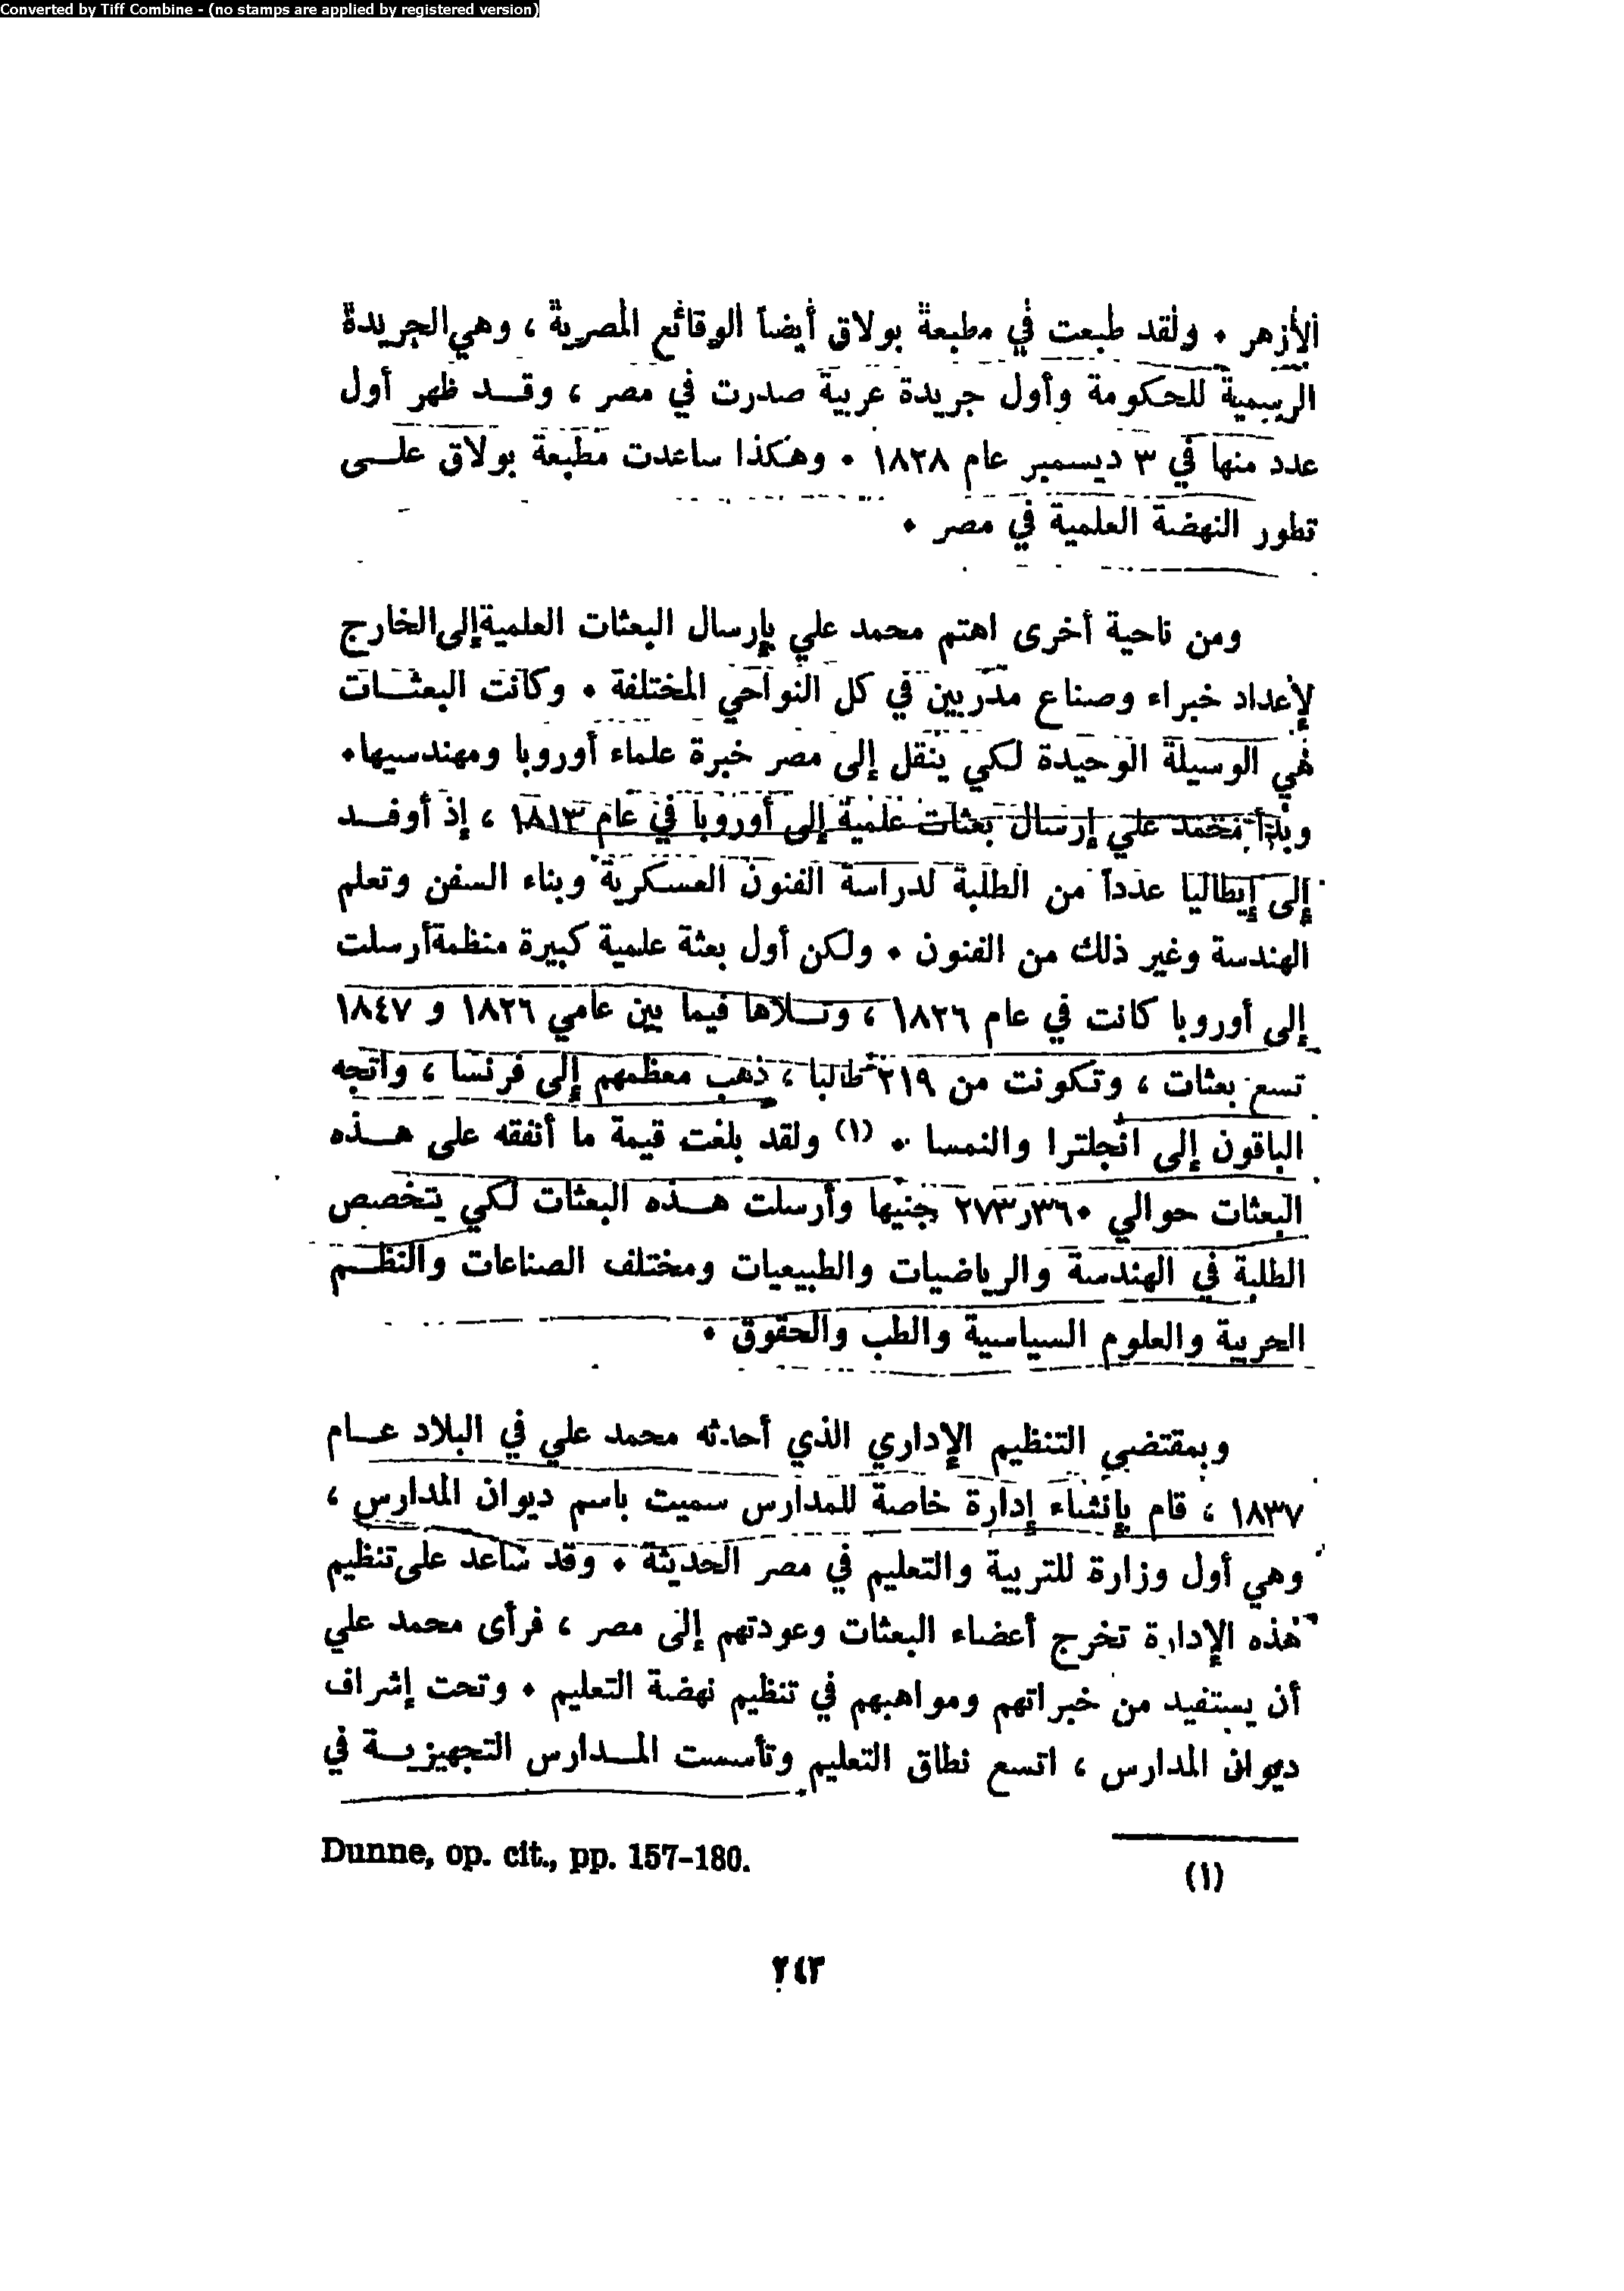 Converted by Tiff Combine - (no stamps are applied by registered version)
الأزهر . ولقد طبعت في مطبعة بولاق أيضاً الوقائع المصرية ، وهي الجريدة
الرسمية للحكومة وأول جريدة عربية صدرت في مصر ، وقد ظهر أول
عدد منها في ٣ ديسمبر عام ١٨٢٨ . وهكذا ساعدت مطبعة بولاق على
تطور النهضة العلمية في مصر .
ومن ناحية أخرى اهتم محمد علي بإرسال البعثات العلمية إلى الخارج
لإعداد خبراء وصناع مدربين في كل النواحي المختلفة . وكانت البعثات
هي الوسيلة الوحيدة لكي ينقل إلى مصر خبرة علماء أوروبا ومهندسيها .
وبدأ محمد علي إرسال بعثات علمية إلى أوروبا في عام ١٨١٣ ، إذ أوفد
إلى إيطاليا عدداً من الطلبة لدراسة الفنون العسكرية وبناء السفن وتعلم
الهندسة وغير ذلك من الفنون . ولكن أول بعثة علمية كبيرة منظمة أرسلت
إلى أوروبا كانت في عام ١٨٢٦ ، وتلاها فيما بين عامي ١٨٢٦ و ١٨٤٧
تسع بعثات ، وتكونت من ٢١٩ طالبا ، ذهب معظمهم إلى فرنسا ، واتجه
الباقون إلى انجلترا والنمسا . (١) ولقد بلغت قيمة ما أنفقه على هذه
البعثات حوالي ٢٧٣٫٣٦٠ جنيها وأرسلت هذه البعثات لكي يتخصص
الطلبة في الهندسة والرياضيات والطبيعيات ومختلف الصناعات والنظم
الحربية والعلوم السياسية والطب والحقوق .
وبمقتضى التنظيم الإداري الذي أحدثه محمد علي في البلاد عام
١٨٣٧ ، قام بإنشاء إدارة خاصة للمدارس سميت باسم ديوان المدارس ،
وهي أول وزارة للتربية والتعليم في مصر الحديثة . وقد ساعد على تنظيم
هذه الإدارة تخرج أعضاء البعثات وعودتهم إلى مصر ، فرأى محمد علي
أن يستفيد من خبراتهم ومواهبهم في تنظيم نهضة التعليم . وتحت إشراف
ديوان المدارس ، اتسع نطاق التعليم وتأسست المدارس التجهيزية في
(١) Dunne, op. cit., pp. 157-180.
٢٤٣